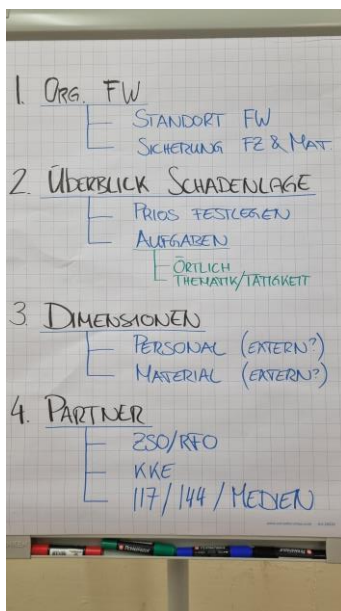 1. ORG. FW
STANDORT FW
SICHERUNG FZ & MAT.
2. ÜBERBLICK SCHADENLAGE
PRIOS FESTLEGEN
AUFGABEN
ÖRTLICH
THEMATIK/TÄTIGKEIT
3. DIMENSIONEN
PERSONAL (EXTERN?)
MATERIAL (EXTERN?)
4. PARTNER
ZSO/RFO
KKE
117/144/MEDIEN